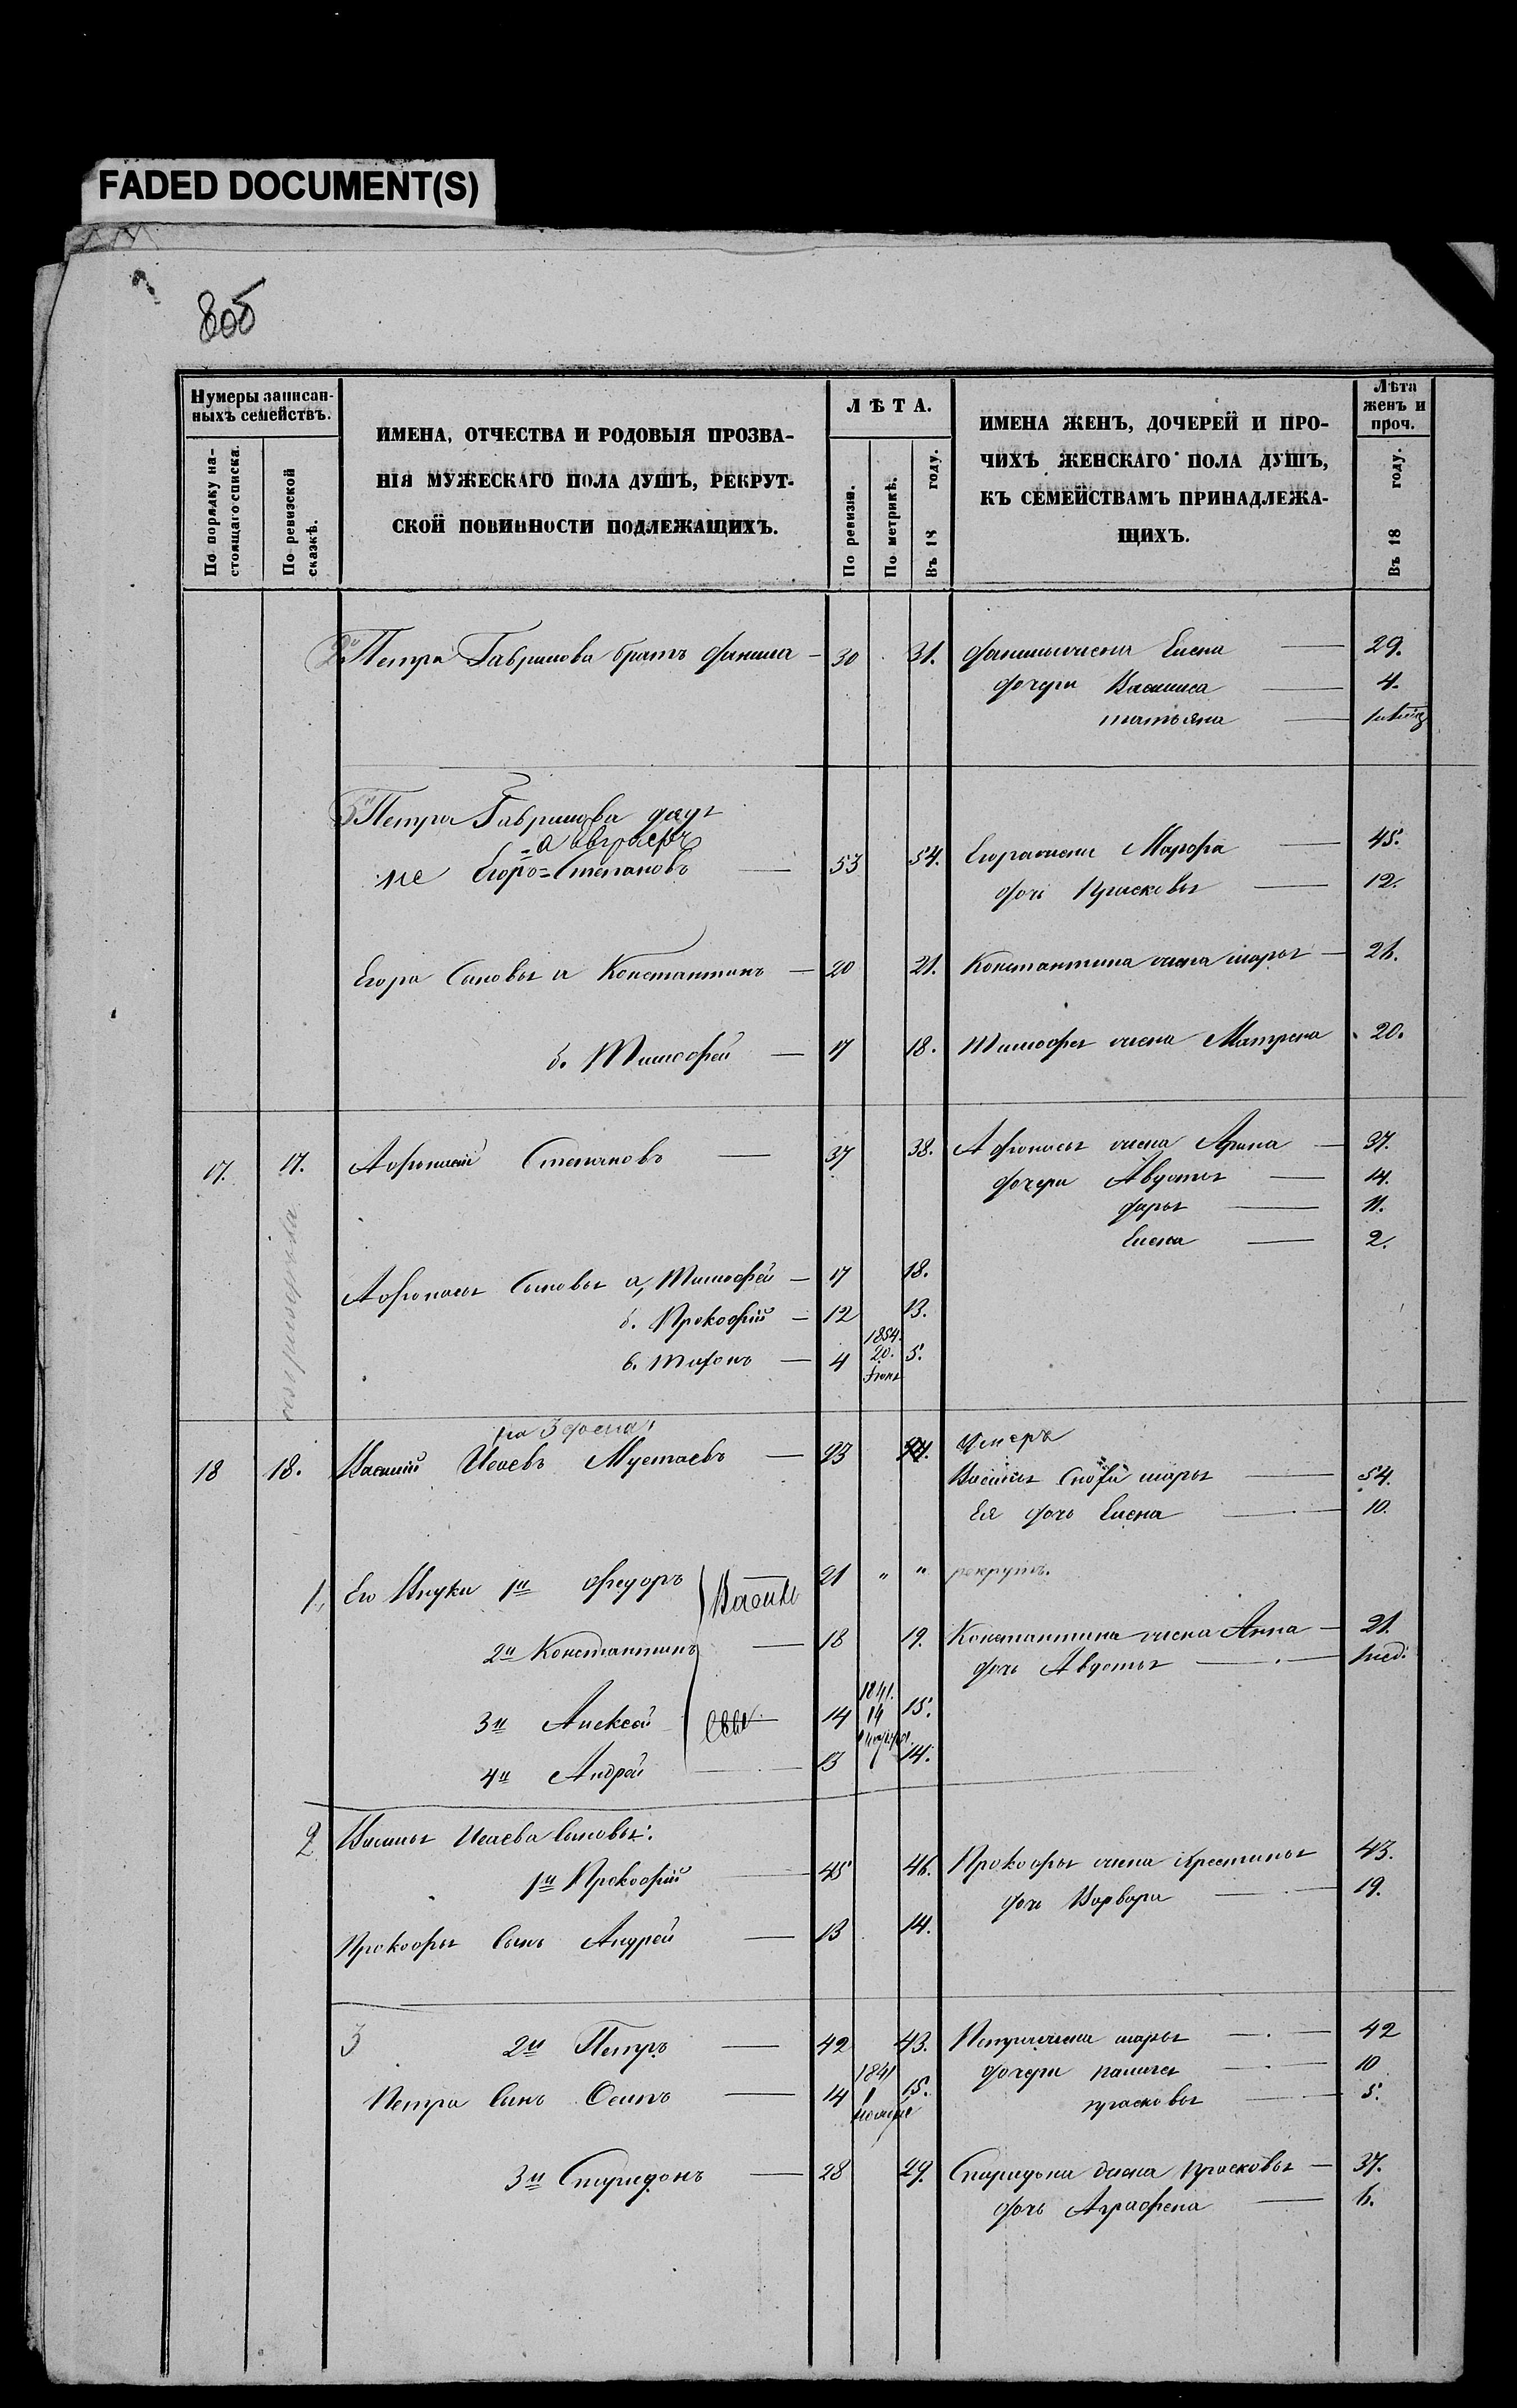 FADED DOCUMENT(S)
805
Нумеры записан-
ныхъ семействъ.
По порядку на-
стоящаго списка.
По ревизской
сказкѣ.
ИМЕНА, ОТЧЕСТВА И РОДОВЫЯ ПРОЗВА-
НІЯ МУЖЕСКАГО ПОЛА ДУШЪ, РЕКРУТ-
СКОЙ ПОВИННОСТИ ПОДЛЕЖАЩИХЪ.
ЛѢТА.
По ревизіи.
По метрикѣ.
Въ 18 году.
ИМЕНА ЖЕНЪ, ДОЧЕРЕЙ И ПРО-
ЧИХЪ ЖЕНСКАГО ПОЛА ДУШЪ,
КЪ СЕМЕЙСТВАМЪ ПРИНАДЛЕЖА-
ЩИХЪ.
Лѣта
женъ и
проч.
Въ 18 году.
2й Петра Гаврилова братъ Данила — 30 31. Данилы жена Елена — 29.
дочери Василиса — 4.
татьяна —
Петра Гаврилова дядя
Егоръ Степановъ — 53 54. Егора жена Марфа — 45.
дочь Прасковья — 12.
Егора Сыновья а Константинъ — 20 21. Константина жена марья — 21.
б. Тимофей — 17 18. Тимофея жена Матрена 20.
17. 17. Афонасей Степановъ — 37 38. Афонасья жена Арина — 37.
дочери Авдотья — 14.
дарья — 11.
Елена — 2.
Афонасья Сыновья а, Тимофей — 17 18.
б. Прокофій — 12 13.
в. тихонъ — 4 1854. 20. Іюня 5.
18 18. Василий Исаевъ Мустаевъ — 93 94. Умеръ
Василья Сноха марья — 54.
Ея дочь Елена — 10.
1. Его Внуки 1й Федоръ 21 „ „ рекрутъ.
2й Константинъ — 18 19. Константина жена Анна — 21.
дочь Авдотья —
3й Алексей 14 1841. 14 15.
4й Андрей — 13 14.
2 Василья Исаева Сыновья:
1й Прокофій — 45 46. Прокофья жена Крестинья 43.
дочь Варвара — 19.
Прокофья Сынъ Андрей — 13 14.
3 2й Петръ — 42 43. Петра жена марья — 42
дочери — 10
Петра Сынъ Осипъ — 14 1841 1 15. прасковья — 5.
3й Спиридонъ — 28 29. Спиридона жена прасковья — 37.
дочь Аграфена — 6.